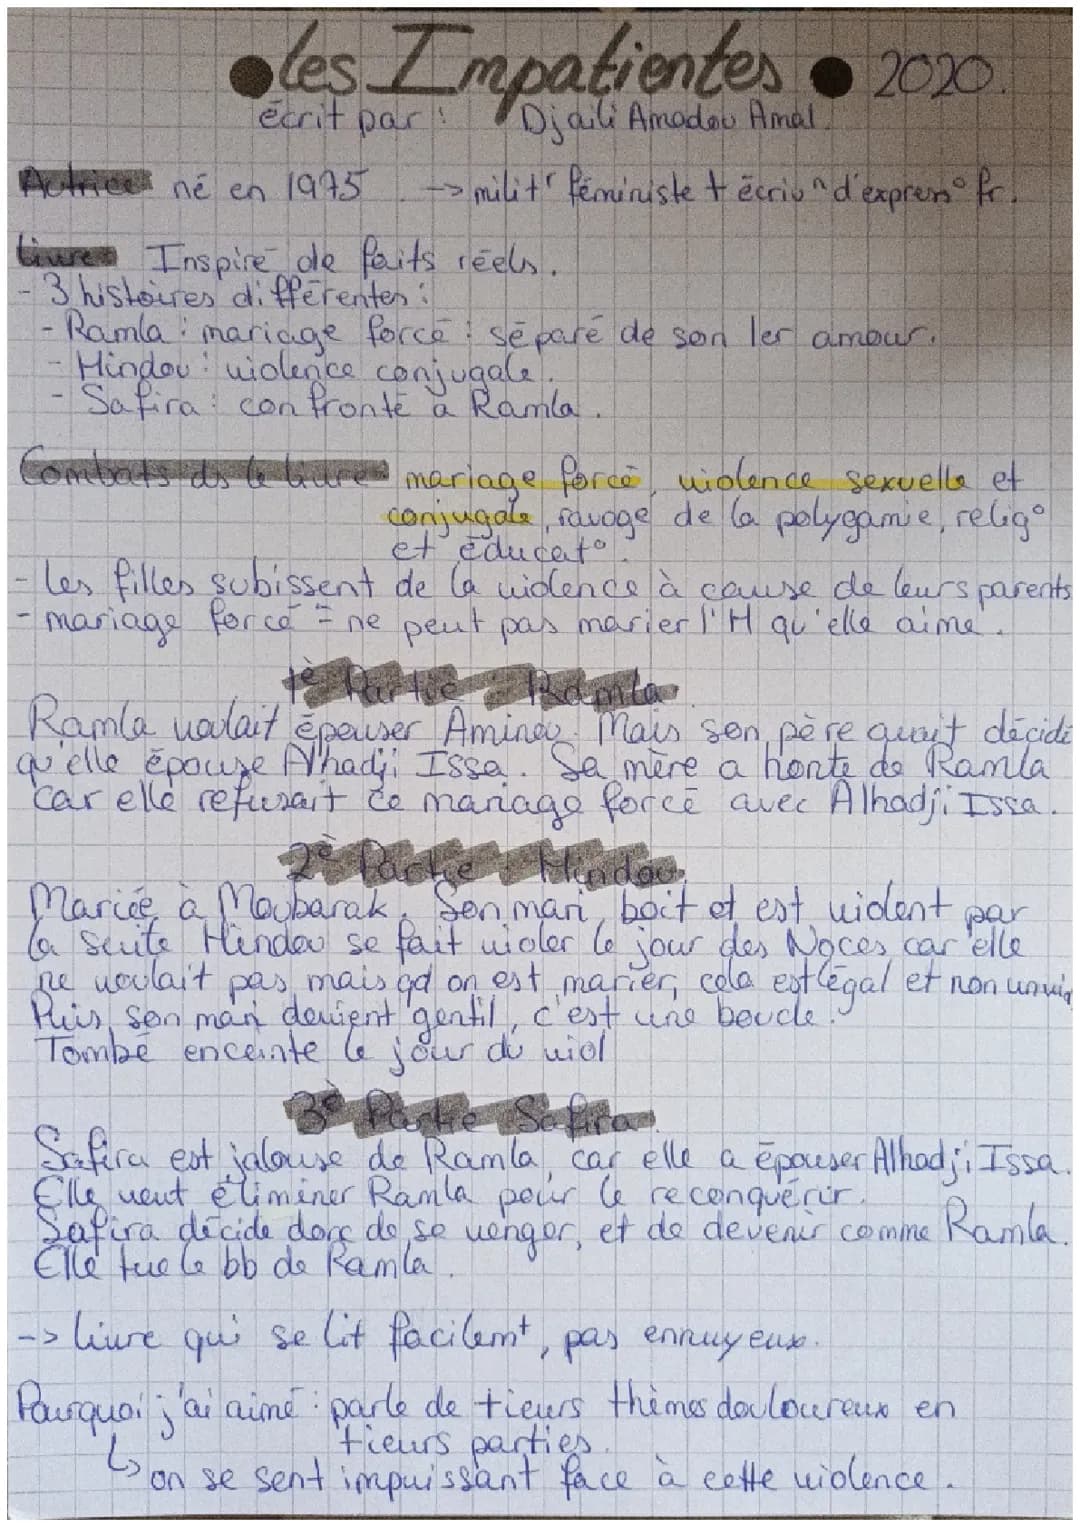 •Les Impatientes • 2020.
écrit par : Djaïli Amadou Amal.
Autrice né en 1975 -> milit^r féministe + écriv^n d'express° fr.
Livre Inspiré de faits réels.
- 3 histoires différentes :
- Ramla : mariage forcé : séparé de son 1er amour.
- Hindou : violence conjugale.
- Safira : confronté à Ramla.
Combats ds le livre mariage forcé, violence sexuelle et
conjugale, ravage de la polygamie, relig°
et éducat°.
- les filles subissent de la violence à cause de leurs parents
- mariage forcé = ne peut pas marier l'H qu'elle aime.
1è Partie : Ramla
Ramla voulait épouser Aminou. Mais son père avait décidé
qu'elle épouse Alhadji Issa. Sa mère a honte de Ramla
car elle refusait ce mariage forcé avec Alhadji Issa.
2è Partie : Hindou.
Mariée à Moubarak. Son mari boit et est violent par
la suite Hindou se fait violer le jour des Noces car elle
ne voulait pas mais qd on est marier, cela est légal et non un
Puis son mari devient gentil, c'est une boucle.
Tombé enceinte le jour du viol
3è Partie Safira.
Safira est jalouse de Ramla, car elle a épouser Alhadji Issa.
Elle veut éliminer Ramla pour le reconquérir.
Safira décide donc de se venger, et de devenir comme Ramla.
Elle tue le bb de Ramla.
-> livre qui se lit facilem^t, pas ennuyeux.
Pourquoi j'ai aimé : parle de +ieurs thèmes douloureux en
+ieurs parties.
↳ on se sent impuissant face à cette violence.